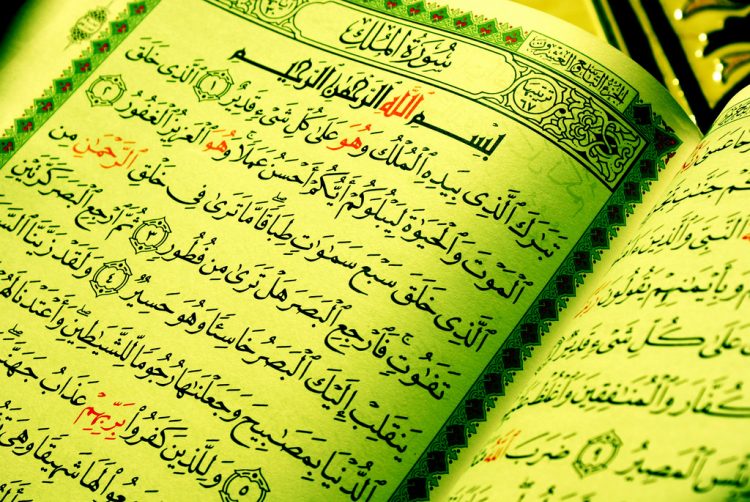 الجزء التاسع والعشرون
سُورَةُ المُلْكِ
ترتيبها ٦٧
بِسْمِ ٱللَّهِ ٱلرَّحْمَٰنِ ٱلرَّحِيمِ
تَبَٰرَكَ ٱلَّذِى بِيَدِهِ ٱلْمُلْكُ وَهُوَ عَلَىٰ كُلِّ شَىْءٍ قَدِيرٌ ١ ٱلَّذِى خَلَقَ
ٱلْمَوْتَ وَٱلْحَيَوٰةَ لِيَبْلُوَكُمْ أَيُّكُمْ أَحْسَنُ عَمَلًا ۚ وَهُوَ ٱلْعَزِيزُ ٱلْغَفُورُ ٢
ٱلَّذِى خَلَقَ سَبْعَ سَمَٰوَٰتٍ طِبَاقًا ۖ مَّا تَرَىٰ فِى خَلْقِ ٱلرَّحْمَٰنِ مِن
تَفَٰوُتٍ ۖ فَٱرْجِعِ ٱلْبَصَرَ هَلْ تَرَىٰ مِن فُطُورٍ ٣ ثُمَّ ٱرْجِعِ ٱلْبَصَرَ كَرَّتَيْنِ
يَنقَلِبْ إِلَيْكَ ٱلْبَصَرُ خَاسِئًا وَهُوَ حَسِيرٌ ٤ وَلَقَدْ زَيَّنَّا
ٱلدُّنْيَا بِمَصَٰبِيحَ وَجَعَلْنَٰهَا رُجُومًا لِّلشَّيَٰطِينِ ۖ وَأَعْتَدْنَا لَهُمْ
وَلِلَّذِينَ كَفَرُوا۟ بِرَبِّهِمْ عَذَابُ جَهَنَّمَ
لَهَا شَهِيقًا وَهِىَ
٥
ٱلنَّبِىَّ وَٱلَّذِينَ
وَبِأَيْمَٰنِهِمْ يَقُولُونَ
عَلَىٰ كُلِّ شَىْءٍ قَدِيرٌ
وَٱلْمُنَٰفِقِينَ وَٱغْلُظْ
ٱلْمَصِيرُ ٩ ضَرَبَ ٱللَّهُ